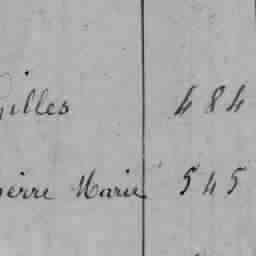 Gilles 484
Pierre Marie 545